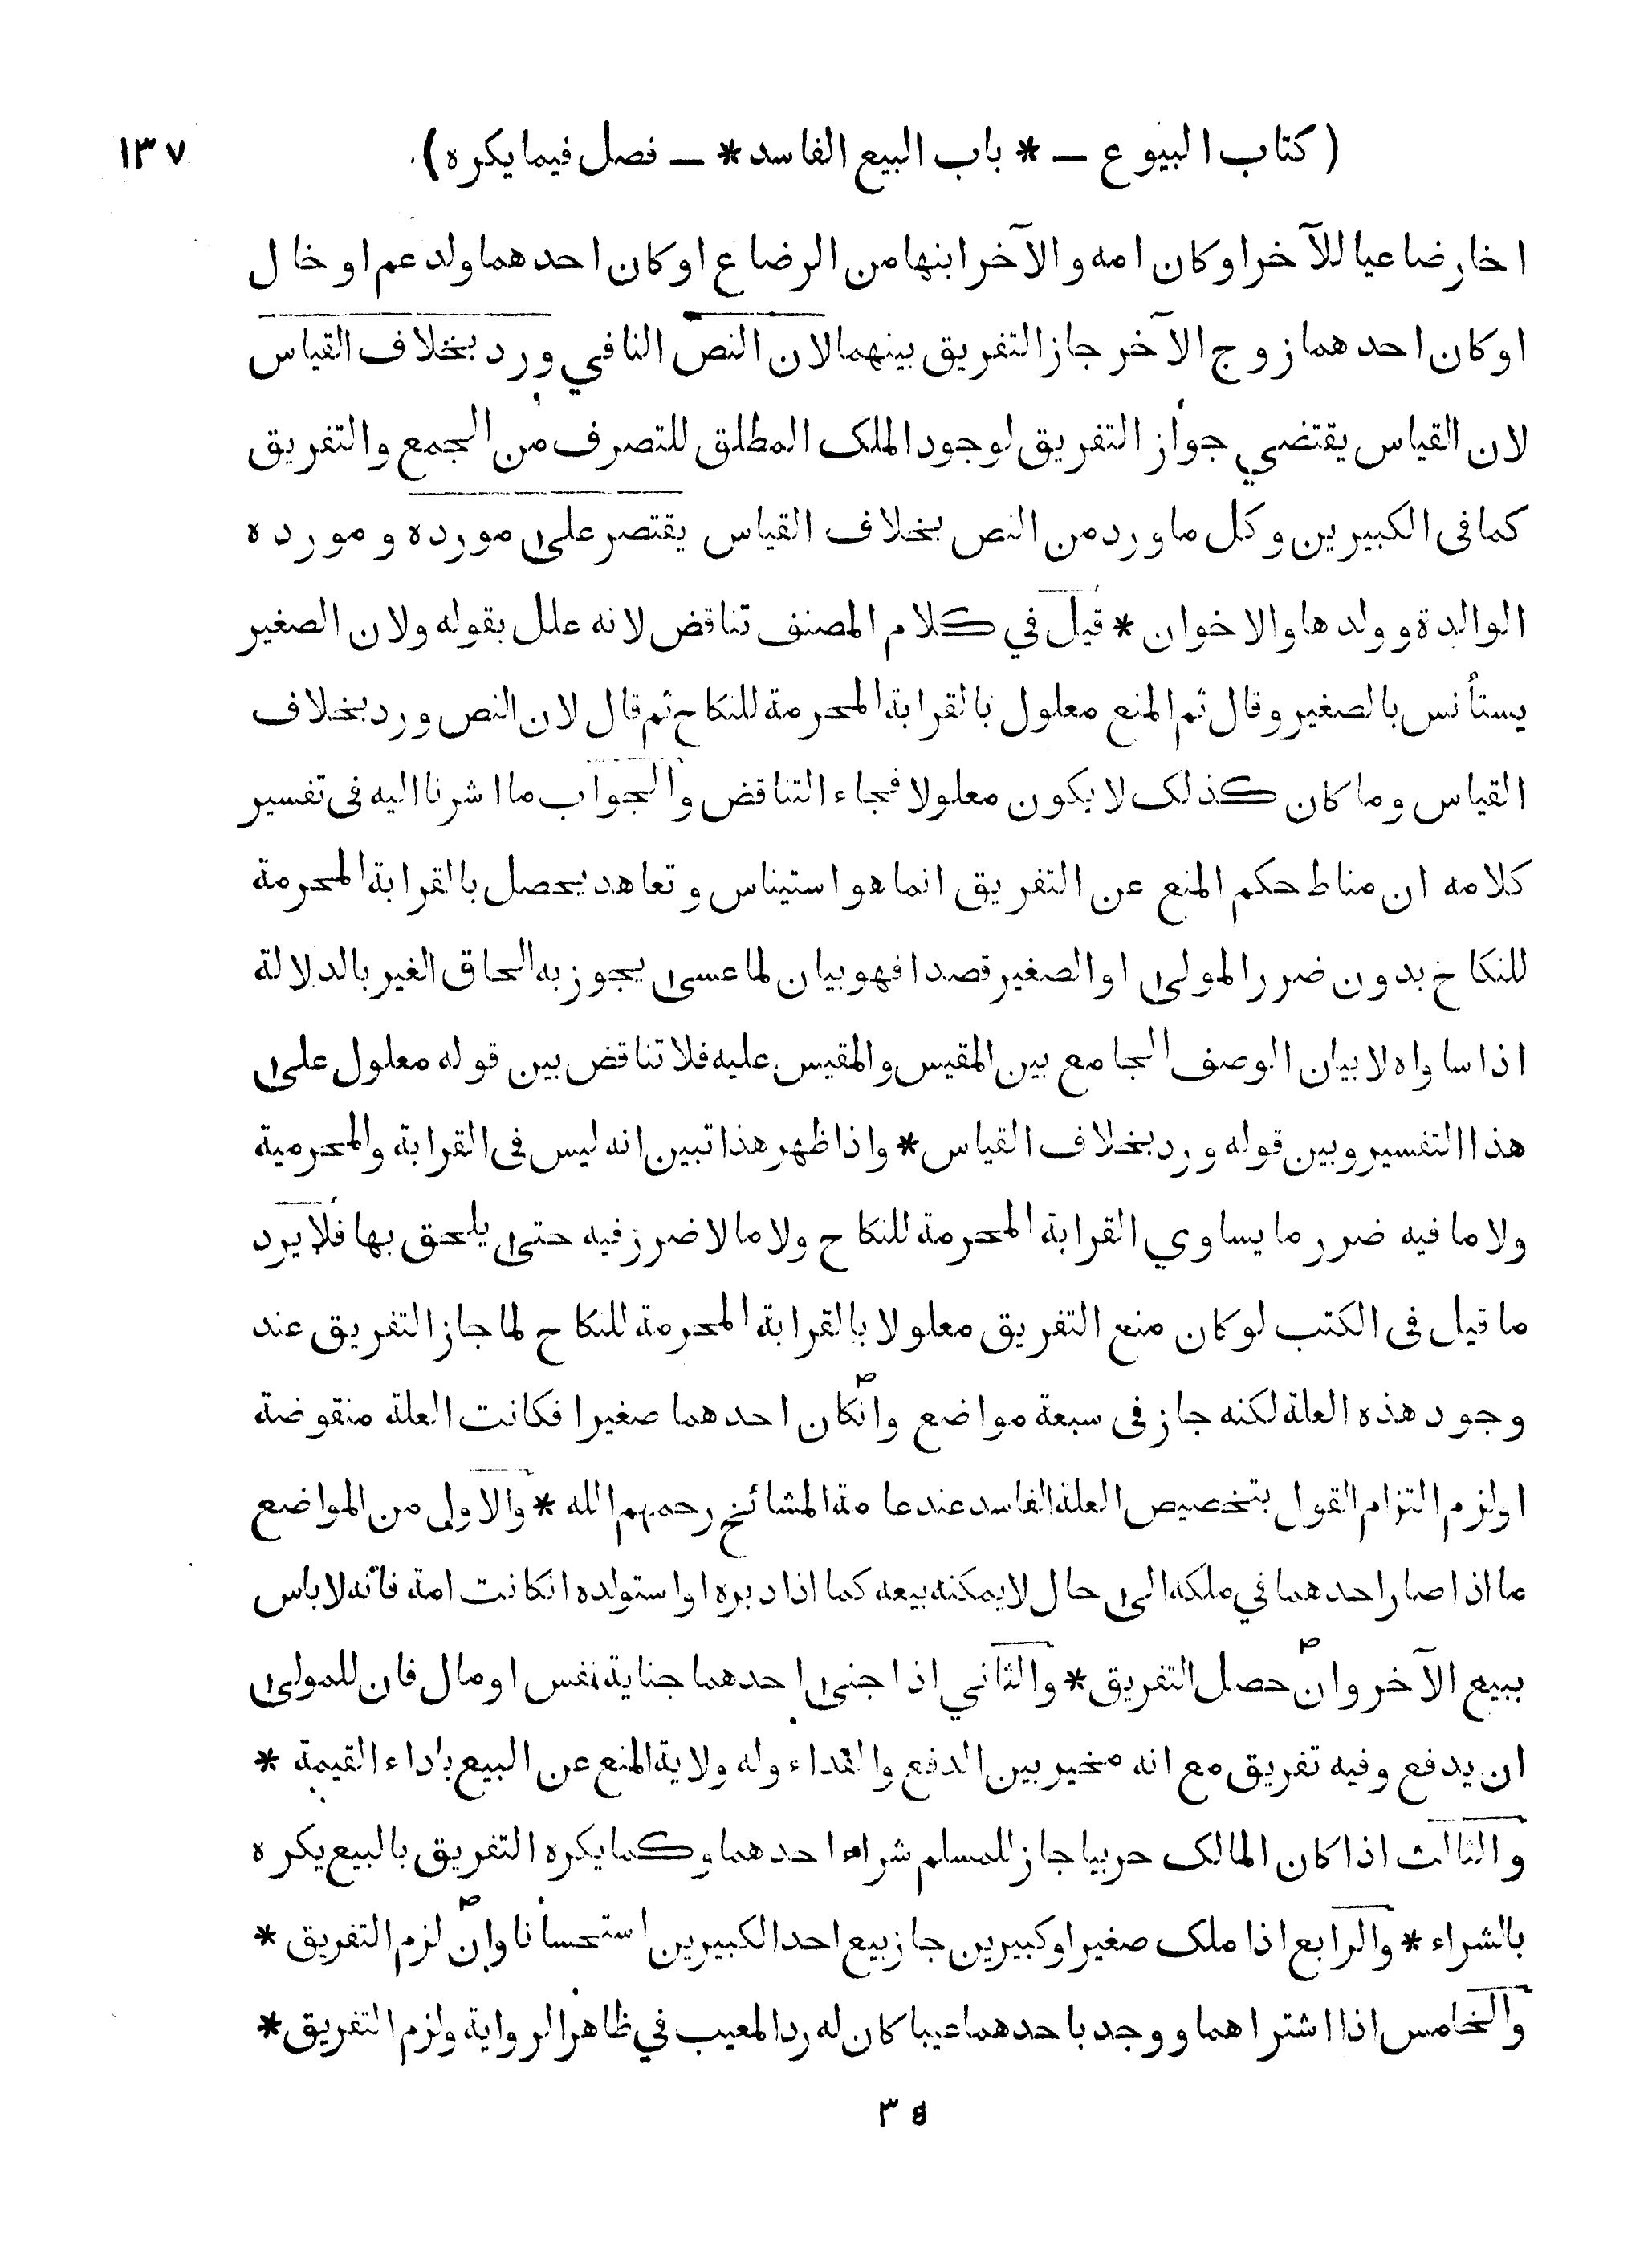 (كتاب البيوع — * باب البيع الفاسد * — فصل فيما يكره) ١٣٧
اخا رضاعيا للآخر او كان امه والآخر ابنها من الرضاع او كان احدهما ولد عم او خال
او كان احدهما زوج الآخر جاز التفريق بينهما لان النص النافي ورد بخلاف القياس
لان القياس يقتضي جواز التفريق لوجود الملك المطلق للتصرف من الجمع والتفريق
كما فى الكبيرين وكل ما ورد من النص بخلاف القياس يقتصر على مورده ومورده
الوالدة وولدها والاخوان * قيل في كلام المصنف تناقض لانه علل بقوله ولان الصغير
يستأنس بالصغير وقال ثم المنع معلول بالقرابة المحرمة للنكاح ثم قال لان النص ورد بخلاف
القياس وما كان كذلك لا يكون معلولا فجاء التناقض والجواب ما اشرنا اليه فى تفسير
كلامه ان مناط حكم المنع عن التفريق انما هو استيناس وتعاهد يحصل بالقرابة المحرمة
للنكاح بدون ضرر المولى او الصغير قصدا فهو بيان لما عسى يجوز به الحاق الغير بالدلالة
اذا ساواه لا بيان الوصف الجامع بين المقيس والمقيس عليه فلا تناقض بين قوله معلول على
هذا التفسير وبين قوله ورد بخلاف القياس * واذا ظهر هذا تبين انه ليس فى القرابة والمحرمية
ولا ما فيه ضرر ما يساوي القرابة المحرمة للنكاح ولا ما لا ضرر فيه حتى يلحق بها فلا يرد
ما قيل فى الكتب لو كان منع التفريق معلولا بالقرابة المحرمة للنكاح لما جاز التفريق عند
وجود هذه العلة لكنه جاز فى سبعة مواضع وانكان احدهما صغيرا فكانت العلة منقوضة
او لزم التزام القول بتخصيص العلة الفاسد عند عامة المشائخ رحمهم الله * والاولى من المواضع
ما اذا صار احدهما في ملكه الى حال لا يمكنه بيعه كما اذا دبره او استولده انكانت امة فانه لا باس
ببيع الآخر وان حصل التفريق * والثاني اذا جنى احدهما جناية نفس او مال فان للمولى
ان يدفع وفيه تفريق مع انه مخير بين الدفع والفداء وله ولاية المنع عن البيع باداء القيمة *
والثالث اذا كان المالك حربيا جاز للمسلم شراء احدهما وكما يكره التفريق بالبيع يكره
بالشراء * والرابع اذا ملك صغيرا وكبيرين جاز بيع احد الكبيرين استحسانا وان لزم التفريق *
والخامس اذا اشتراهما ووجد باحدهما عيبا كان له رد المعيب في ظاهر الرواية ولزم التفريق *